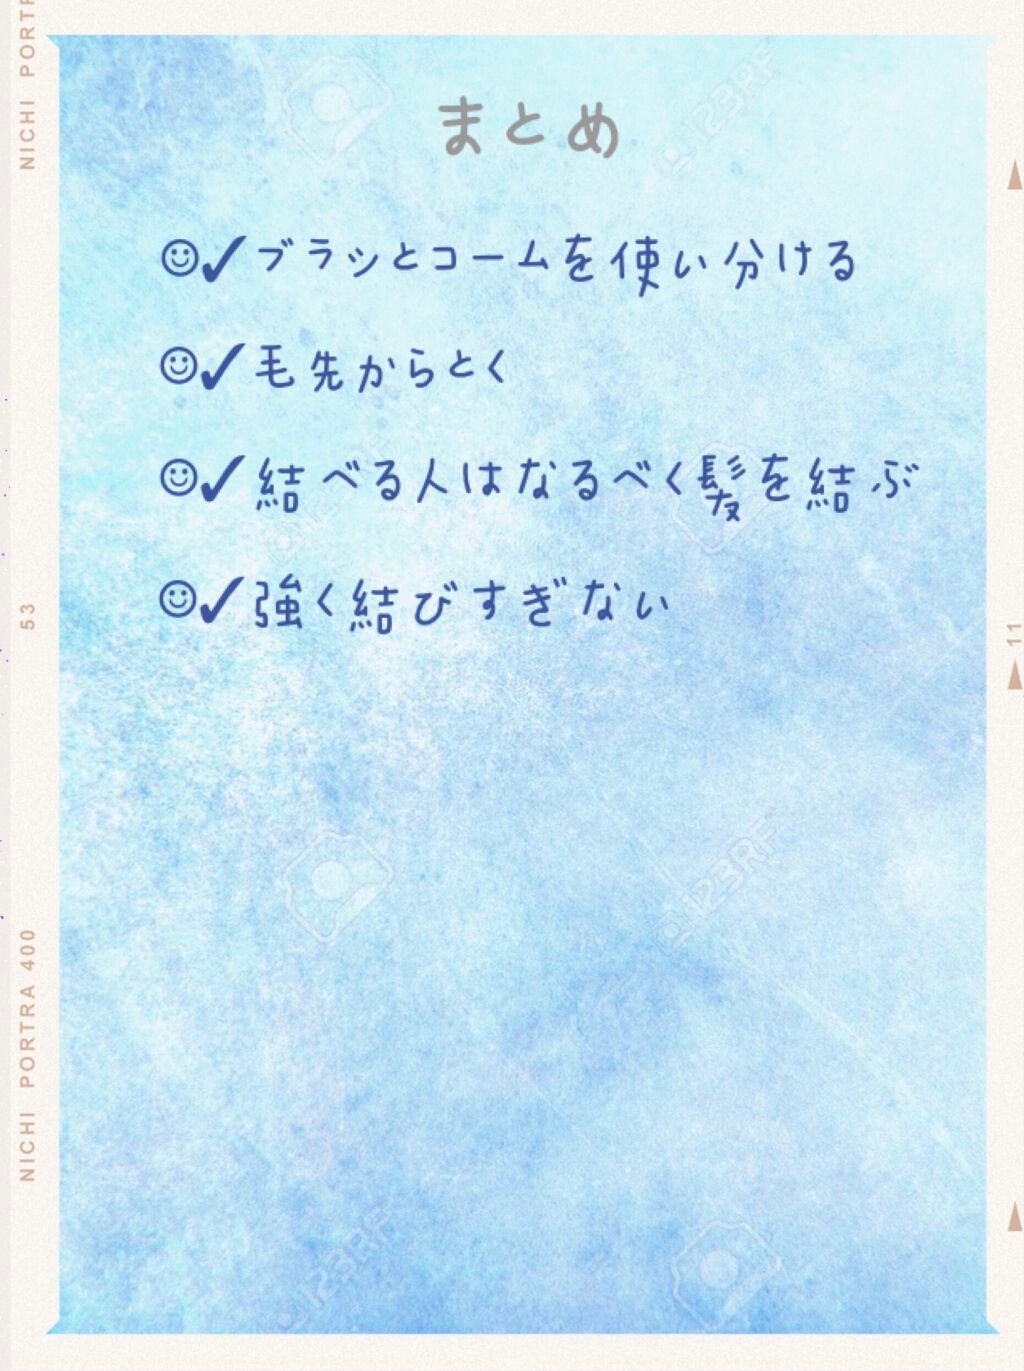 まとめ
☺✓ブラッとコームを使い分ける
☺✓毛先からとく
☺✓結べる人はなるべく髪を結ぶ
☺✓強く結びすぎない
NICHI PORTR
53
NICHI PORTRA 400
11
123RF
123RF
123RF
123RF